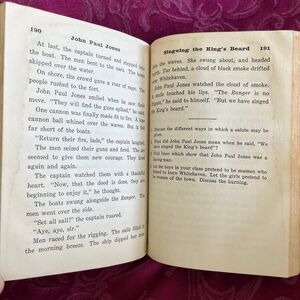 190
John Paul Jones
At last, the captain turned and stepped into
the boat. The men bent to the oars. The boat
skipped over the water.
On shore, the crowd gave a roar of rage. The
people rushed to the fort.
John Paul Jones smiled when he saw them
move. "They will find the guns spiked," he said.
One cannon was finally made fit to fire. A red
cannon ball whined over the waves. But it fell
far short of the boats.
"Return their fire, lads," the captain laughed.
The men seized their guns and fired. The sound
seemed to give them new courage. They fired
again and again.
The captain watched them with a thankful
heart. "Now, that the deed is done, they are
beginning to enjoy it," he thought.
The boats swung alongside the Ranger. The
men went over the side.
"Set all sail!" the captain roared.
"Aye, aye, sir."
Men raced for the rigging. The sails filled in
the morning breeze. The ship dipped her nose
Singeing the King's Beard
191
the waves. She swung about, and headed
north. Far behind, a cloud of black smoke drifted
over Whitehaven.
John Paul Jones watched the cloud of smoke.
"The Ranger is no
he said to himself. "But we have singed
King's beard."
Discuss the different ways in which a salute may be
What did John Paul Jones mean when he said, "We
singed the King's beard"?
which show that John Paul Jones was a
the boys in your class pretend to be seamen who
to burn Whitehaven. Let the girls pretend to
women of the town. Discuss the burning.